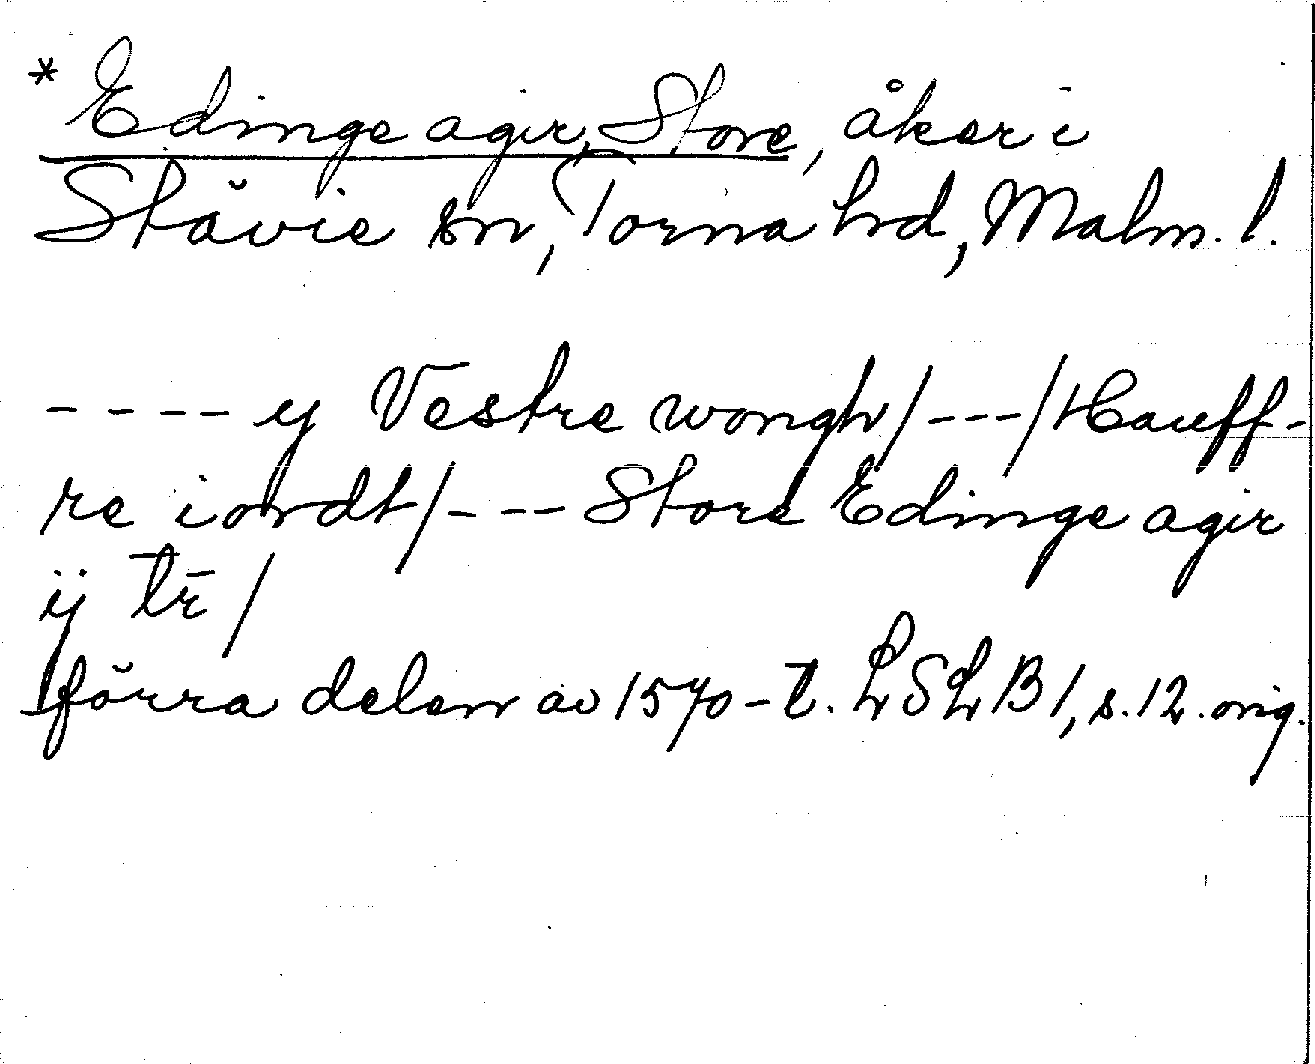 * Edinge agir, Store, åker i
Stävie sn, Torna hd, Malm. l.
---- y Vestre wongh/---/Hauff-
re iordt/---Store Edinge agir
ij tr̄/
förra delen av 1570-t. LSLB 1, s. 12. orig.